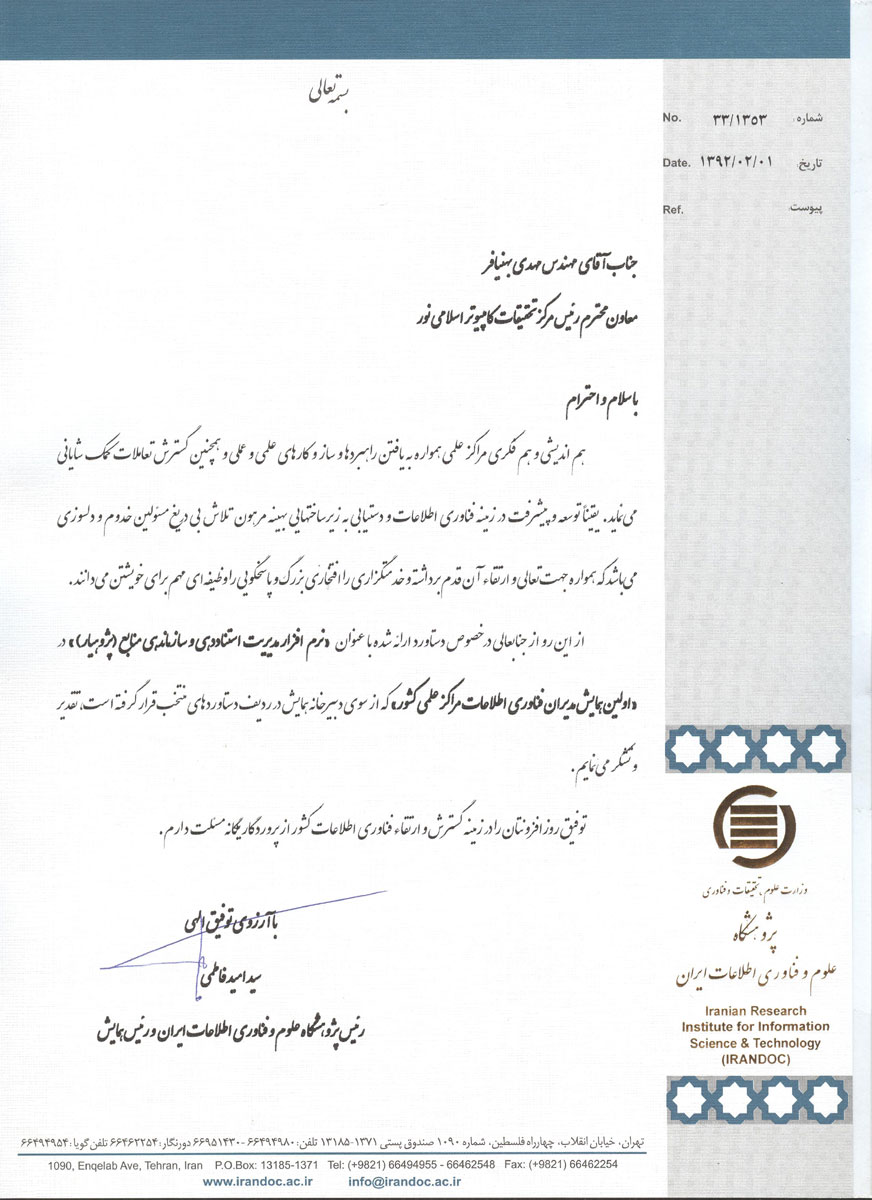 بسمه تعالی
شماره: ۳۳/۱۳۵۳ No.
تاریخ: ۱۳۹۲/۰۲/۰۱ Date.
پیوست: Ref.
جناب آقای مهندس مهدی بهنیافر
معاون محترم رئیس مرکز تحقیقات کامپیوتر اسلامی نور
با سلام و احترام
هم اندیشی و هم فکری مراکز علمی همواره به یافتن راهبردها و ساز و کارهای علمی و عملی و همچنین گسترش تعاملات کمک شایانی
می نماید. یقیناً توسعه و پیشرفت در زمینه فناوری اطلاعات و دستیابی به زیرساختهایی بهینه مرهون تلاش بی دریغ مسئولین خدوم و دلسوزی
می باشد که همواره جهت تعالی و ارتقاء آن قدم برداشته و خدمتگزاری را افتخاری بزرگ و پاسخگویی را وظیفه ای مهم برای خویشتن می دانند.
از این رو از جنابعالی در خصوص دستاورد ارائه شده با عنوان «نرم افزار مدیریت استناددهی و سازماندهی منابع (پژوهیار)» در
«اولین همایش مدیران فناوری اطلاعات مراکز علمی کشور» که از سوی دبیرخانه همایش در ردیف دستاوردهای منتخب قرار گرفته است، تقدیر
و تشکر می نمایم.
توفیق روز افزونتان را در زمینه گسترش و ارتقاء فناوری اطلاعات کشور از پروردگار یگانه مسئلت دارم.
با آرزوی توفیق الهی
سید امید فاطمی
رئیس پژوهشگاه علوم و فناوری اطلاعات ایران و رئیس همایش
وزارت علوم، تحقیقات و فناوری
پژوهشگاه
علوم و فناوری اطلاعات ایران
Iranian Research
Institute for Information
Science & Technology
(IRANDOC)
تهران، خیابان انقلاب، چهارراه فلسطین، شماره ۱۰۹۰ صندوق پستی ۱۳۷۱-۱۳۱۸۵ تلفن: ۶۶۴۹۴۹۸۰ - ۶۶۹۵۱۴۳۰ دورنگار: ۶۶۴۶۲۲۵۴ تلفن گویا: ۶۶۴۹۴۹۵۴
1090, Enqelab Ave, Tehran, Iran P.O.Box: 13185-1371 Tel: (+9821) 66494955 - 66462548 Fax: (+9821) 66462254
www.irandoc.ac.ir info@irandoc.ac.ir